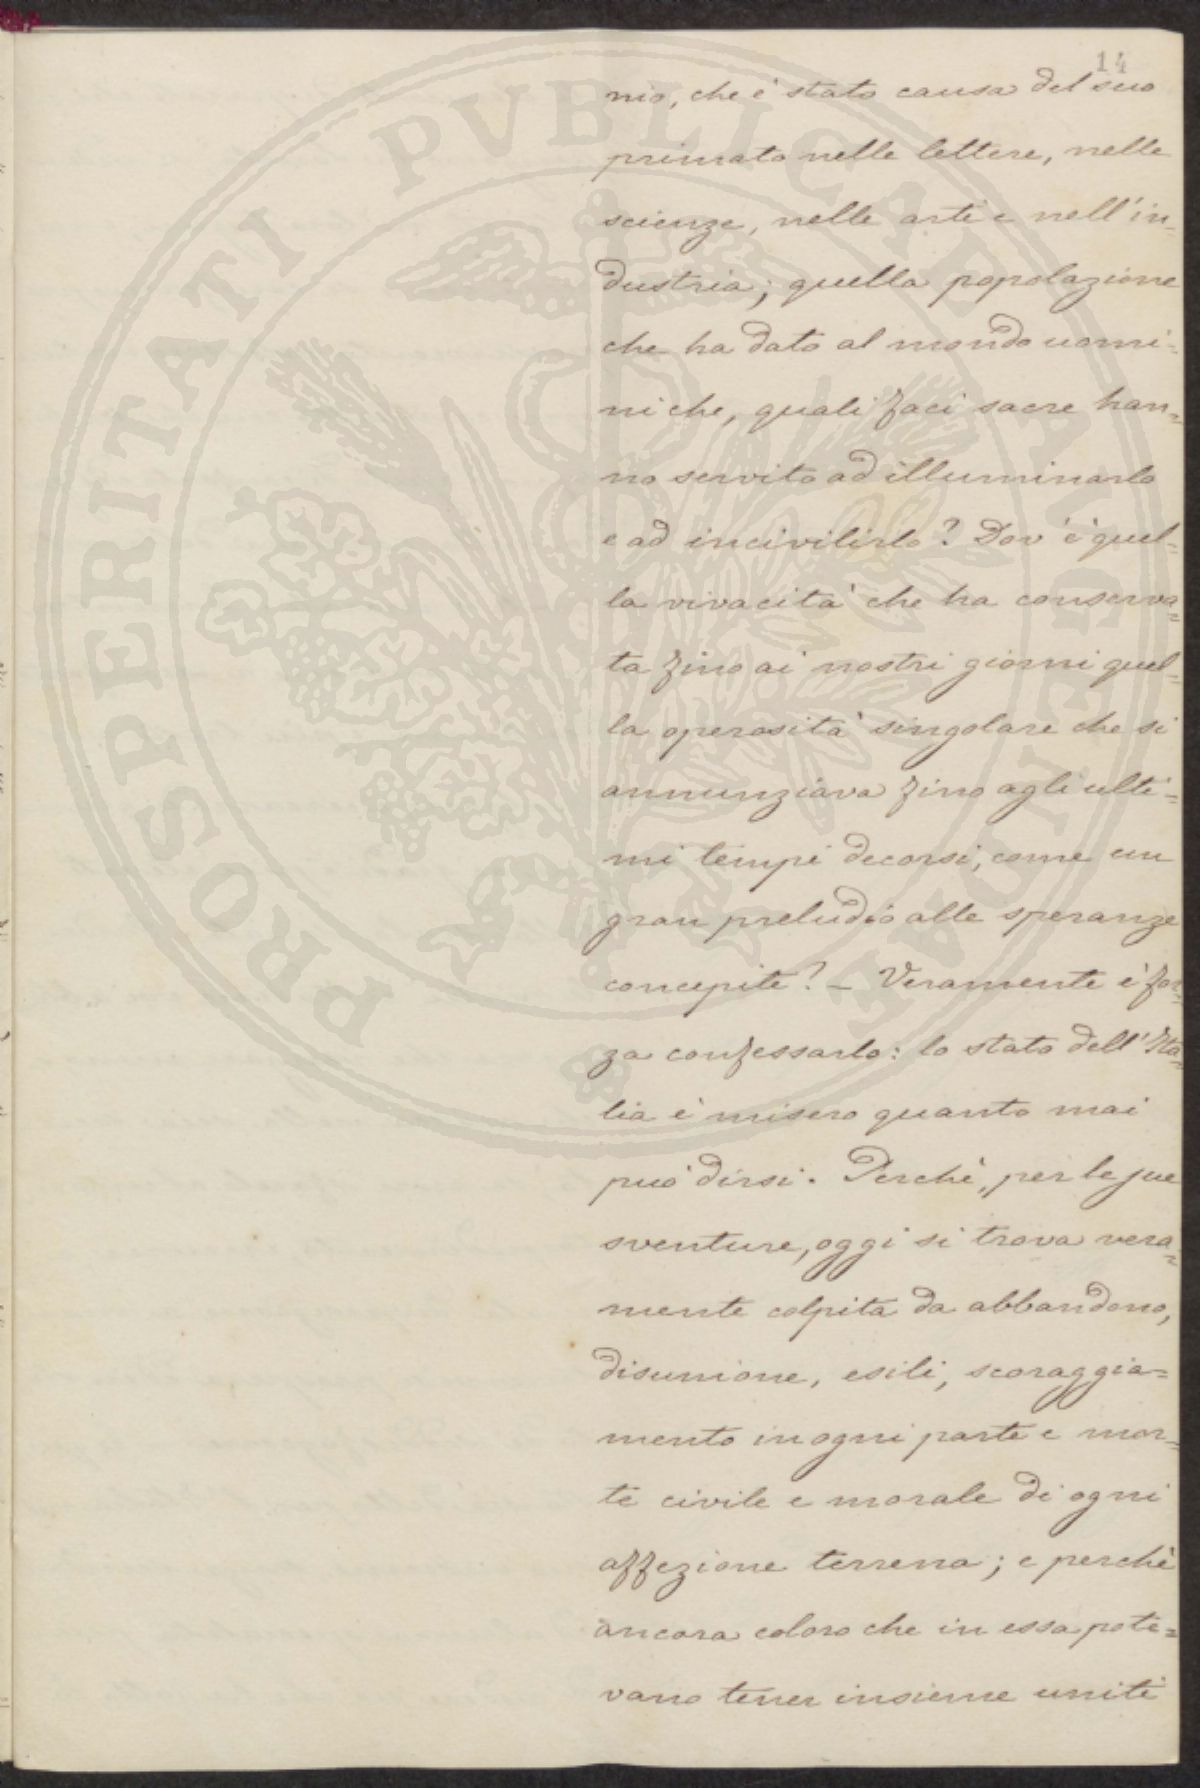 14
nio, che è stato causa del suo
primato nelle lettere, nelle
scienze, nelle arti e nell'in-
dustria; quella popolazione
che ha dato al mondo uomi=
ni che, quali faci sacre han=
no servito ad illuminarlo
e ad incivilirlo? Dov'è quel=
la vivacità che ha conserva=
ta fino ai nostri giorni quel=
la operosità singolare che si
annunziava fino agli ulti=
mi tempi decorsi, come un
gran preludio alle speranze
concepite? _ Veramente è for=
za confessarlo: lo stato dell'Ita=
lia è misero quanto mai
può dirsi. Perchè, per le sue
sventure, oggi si trova vera=
mente colpita da abbandono,
disunione, esili, scoraggia=
mento in ogni parte e mor=
te civile e morale di ogni
affezione terrena; e perchè
ancora coloro che in essa pote=
vano tener insieme uniti
PROSPERITATI PVBLICAE AVGENDAE